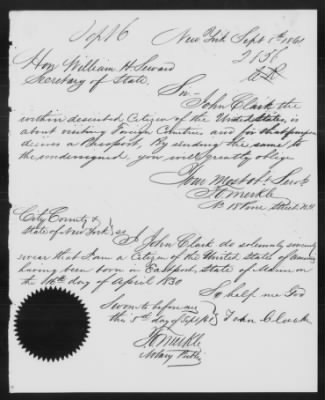 Sept 6
New York Sept 5th 1861
Hon William H. Seward
Secretary of State.
Sir
John Clark the
within described Citizen of the United States, is
about visiting Foreign Countries and for that purpose
desires a Passport, By sending the same to
the undersigned, you will greatly oblige
Your Most obt Servt
Merkle
Street N.Y
City County &
State of New York } SS
I, John Clark do solemnly sincerely
swear that I am a Citizen of the United States of America
having been born in Eastport, State of Maine on
the day of April 1830
So help me God
Sworn to before me
this 5th day of Sept/61 } John Clark
Merkle
Notary Public